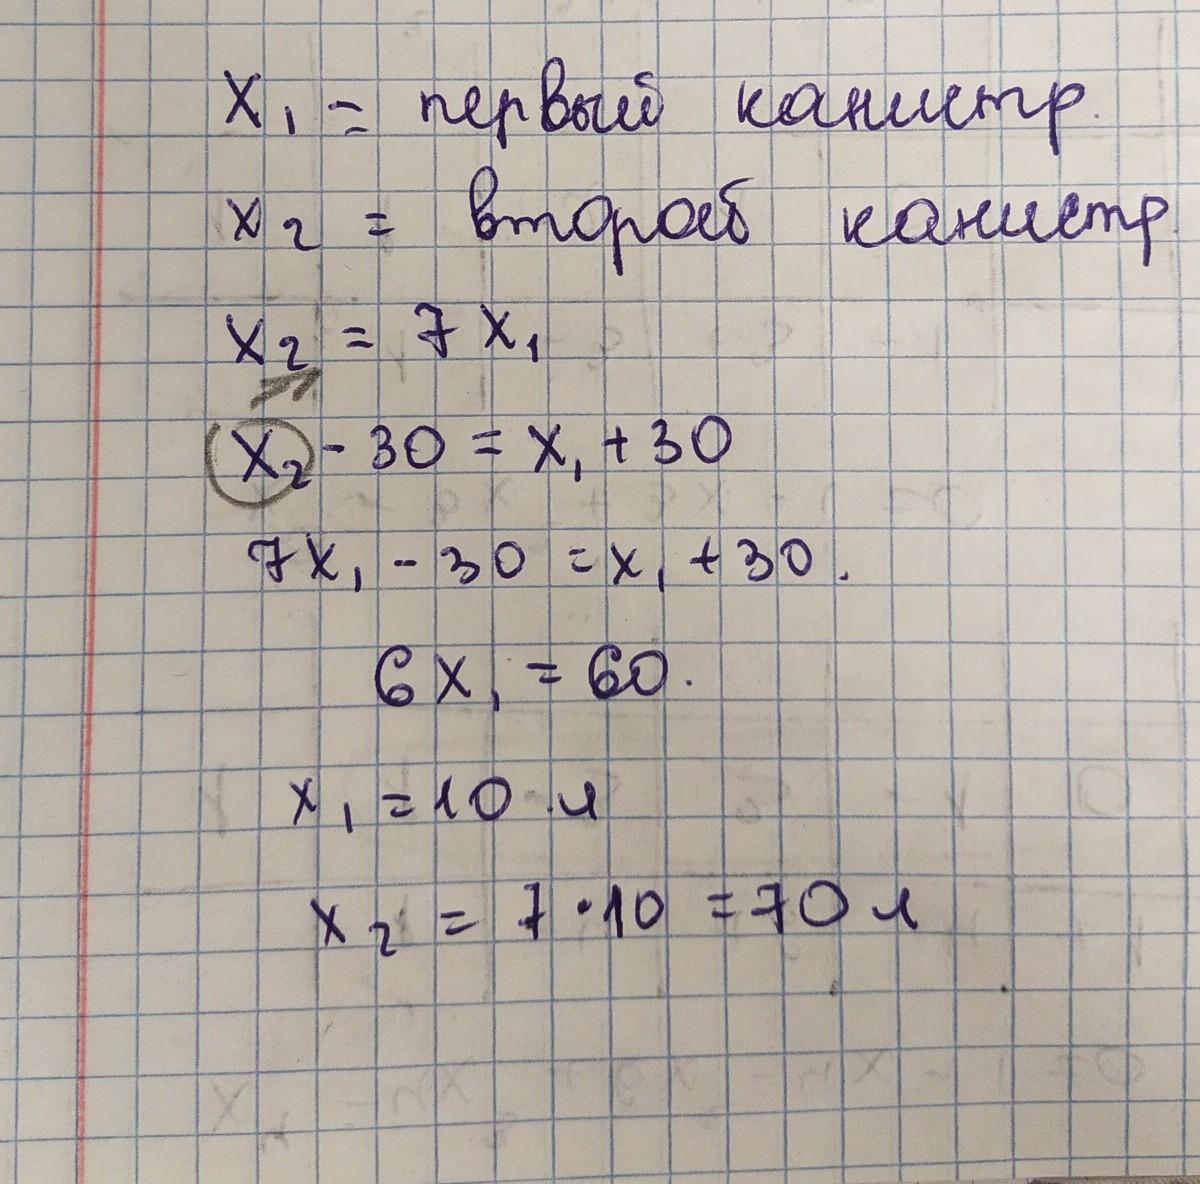 X₁ = первый канистр.
X₂ = второй канистр.
X₂ = 7X₁
X₂ - 30 = X₁ + 30
7X₁ - 30 = X₁ + 30.
6X₁ = 60.
X₁ = 10 л
X₂ = 7·10 = 70 л